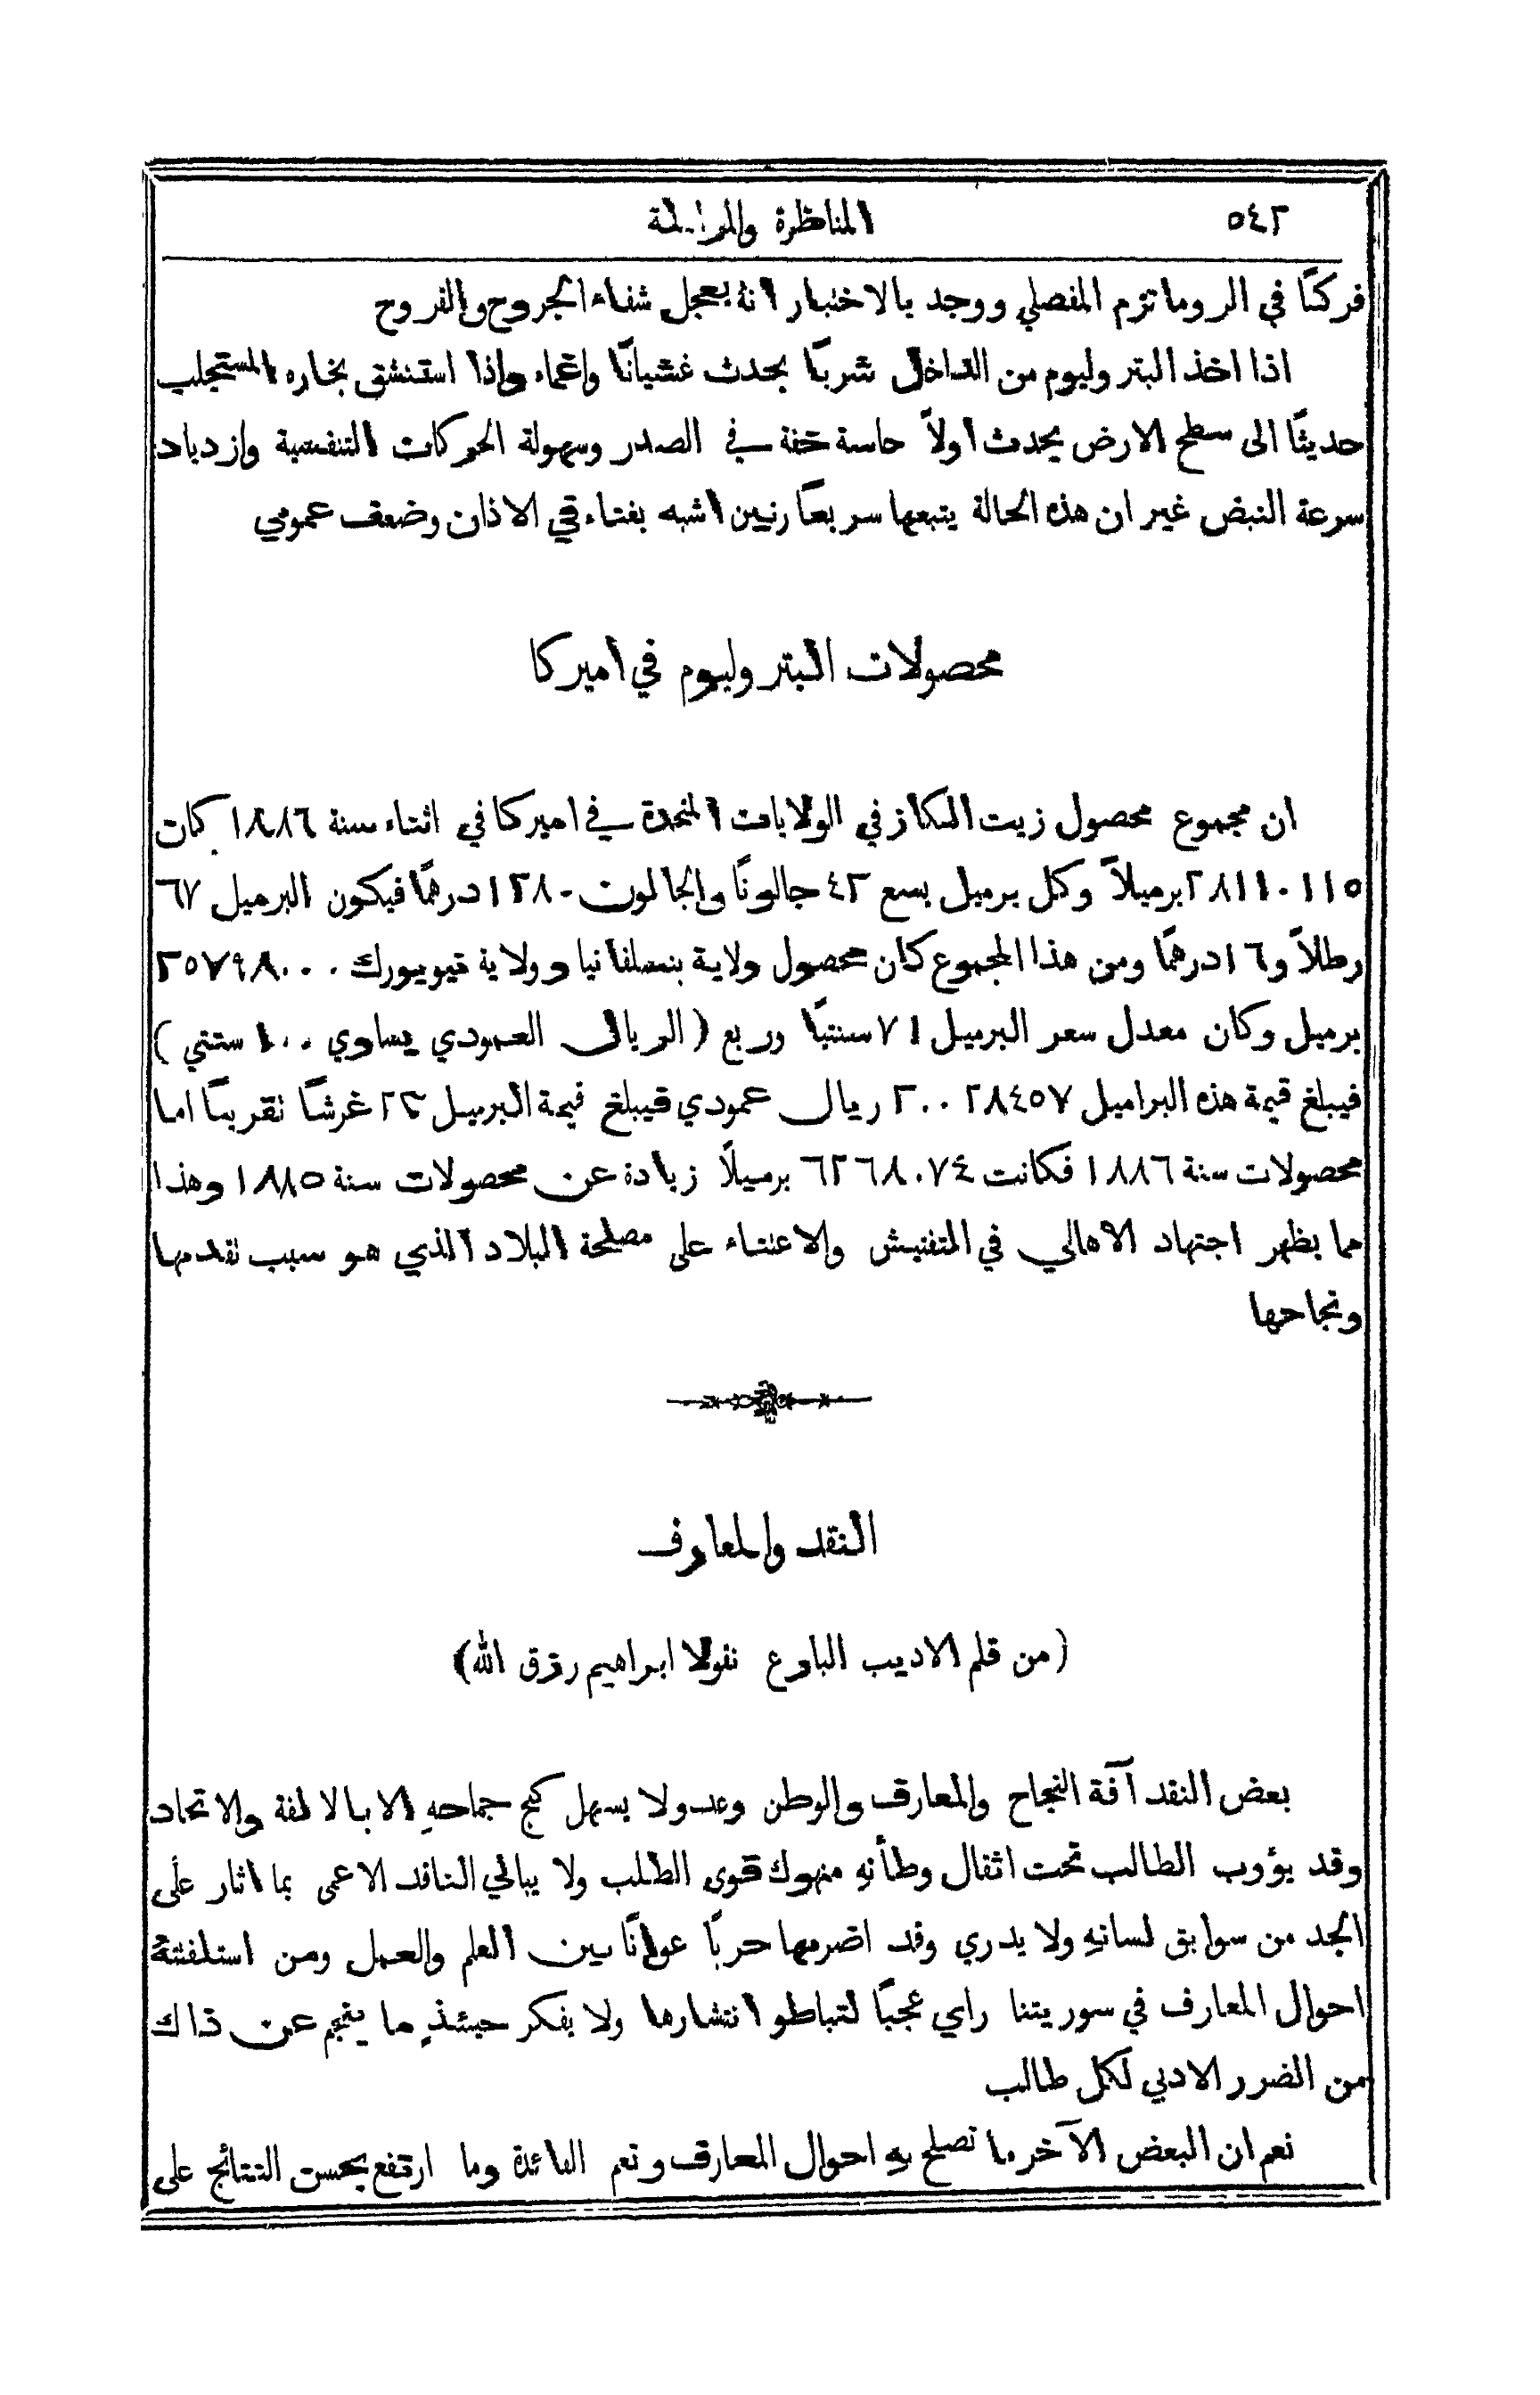 ٥٤٢ المناظرة والمراسلة
فركبًا في الروماتزم المفصلي ووجد بالاختبار انهُ يعجل شفاء الجروح والقروح
اذا اخذ البتروليوم من الداخل شربًا يحدث غشيانًا واغماء واذا استنشق بخاره المستجلب
حديثًا الى سطح الارض يحدث اولاً حاسة خفة في الصدر وسهولة الحركات التنفسية وازدياد
سرعة النبض غير ان هذه الحالة يتبعها سريعًا رنين اشبه بغناء في الاذان وضعف عمومي
محصولات البتروليوم في اميركا
ان مجموع محصول زيت الكاز في الولايات المتحدة في اميركا في اثناء سنة ١٨٨٦ كان
٢٨١١٠١١٥ برميلاً وكل برميل يسع ٤٢ جالونًا والجالون ١٢٨٠ درهمًا فيكون البرميل ٦٧
رطلاً و١٦ درهمًا ومن هذا المجموع كان محصول ولاية بنسلفانيا وولاية نيويورك ٢٥٧٩٨٠٠٠
برميل وكان معدل سعر البرميل ٧١ سنتيًا وربع (الريال العمودي يساوي ١٠٠ سنتي)
فيبلغ قيمة هذه البراميل ٢٨٤٥٧ ٢٠٠ ريال عمودي فيبلغ قيمة البرميل ٢٢ غرشًا تقريبًا اما
محصولات سنة ١٨٨٦ فكانت ٦٢٦٨٠٧٤ برميلاً زيادة عن محصولات سنة ١٨٨٥ وهذا
مما يظهر اجتهاد الاهالي في التفتيش والاعتناء على مصلحة البلاد الذي هو سبب تقدمها
ونجاحها
النقد والمعارف
(من قلم الاديب البارع نقولا ابراهيم رزق الله)
بعض النقد آفة النجاح والمعارف والوطن وعدو لا يسهل كبح جماحهِ الا بالالفة والاتحاد
وقد يؤوب الطالب تحت اثقال وطأتهِ منهوك قوى الطلب ولا يبالي الناقد الاعمى بما اثار على
الجد من سوابق لسانهِ ولا يدري وقد اضرمها حربًا عوانًا بين العلم والعمل ومن استلفتتهُ
احوال المعارف في سوريتنا راي عجبًا لتباطوء انتشارها ولا يفكر حينئذٍ ما ينجم عن ذاك
من الضرر الادبي لكل طالب
نعم ان البعض الآخر ما تصلح بهِ احوال المعارف وتعم الفائدة وما ارتفع بحسن النتائج على